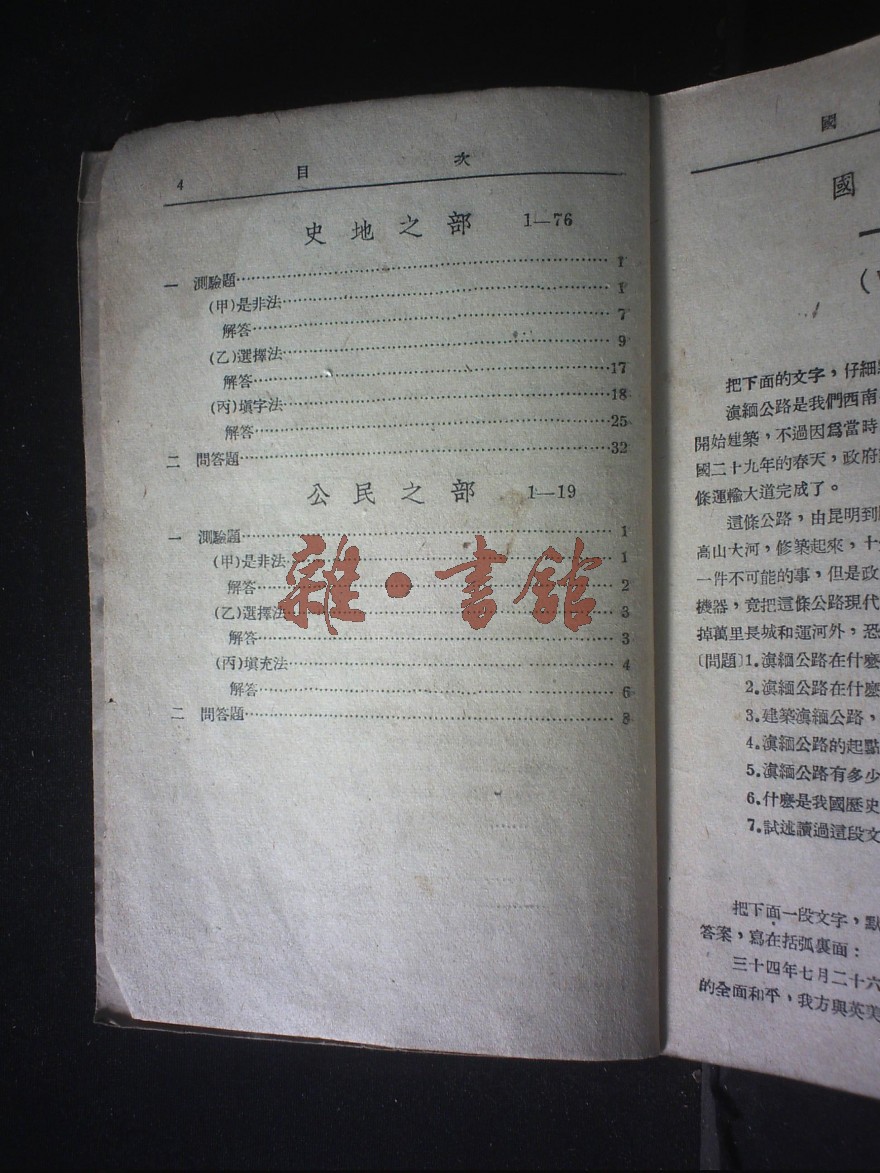 4 目 次
史地之部 1—76
一 測驗題 1
(甲)是非法 1
解答 7
(乙)選擇法 9
解答 17
(丙)填字法 18
解答 25
二 問答題 32
公民之部 1—19
一 測驗題 1
(甲)是非法 1
解答 2
(乙)選擇法 3
解答 3
(丙)填充法 4
解答 6
二 問答題 8
雜·書館
國
國
把下面的文字，仔細
滇緬公路是我們西南
開始建築，不過因爲當時
國二十九年的春天，政府
條運輸大道完成了。
這條公路，由昆明到
高山大河，修築起來，十
一件不可能的事，但是政
機器，竟把這條公路現代
掉萬里長城和運河外，恐
〔問題〕1.滇緬公路在什麼
2.滇緬公路在什麼
3.建築滇緬公路，
4.滇緬公路的起點
5.滇緬公路有多少
6.什麼是我國歷史
7.試述讀過這段文
把下面一段文字，默
答案，寫在括弧裏面：
三十四年七月二十六
的全面和平，我方與英美